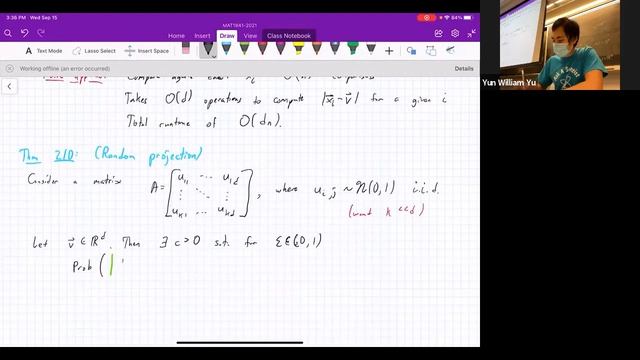 3:36 PM Wed Sep 15
MAT1841-2021
84%
Home Insert Draw View Class Notebook
Text Mode Lasso Select Insert Space
Working offline (an error occurred) Details
Compare against
Takes O(d) operations to compute |x⃗ᵢ-v⃗| for a given i
Total runtime of O(dn).
Thm 2.10: (Random projection)
Consider a matrix A = [u₁₁ ... u₁d ⋮ ⋱ ⋮ uₖ₁ ... uₖd], where uᵢ,ⱼ ~ N(0,1) i.i.d.
(want k << d)
Let v⃗ ∈ ℝᵈ. Then ∃ c>0 s.t. for ε∈(0,1)
Prob (|
Yun William Yu